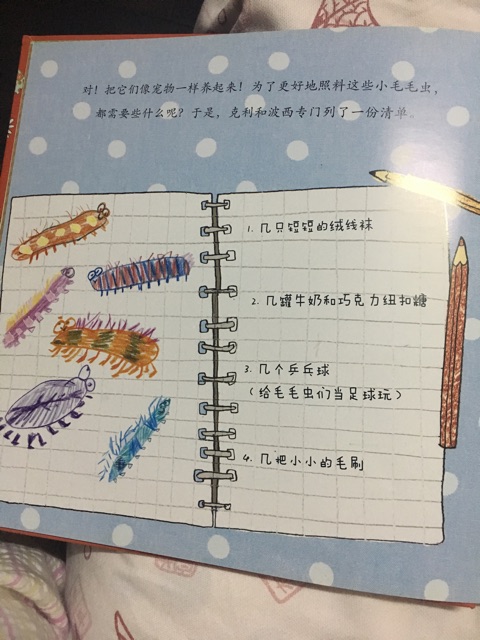 对！把它们像宠物一样养起来！为了更好地照料这些小毛毛虫，
都需要些什么呢？于是，克利和波西专门列了一份清单。
1. 几只短短的绒线袜
2. 几罐牛奶和巧克力纽扣糖
3. 几个乒乓球
（给毛毛虫们当足球玩）
4. 几把小小的毛刷